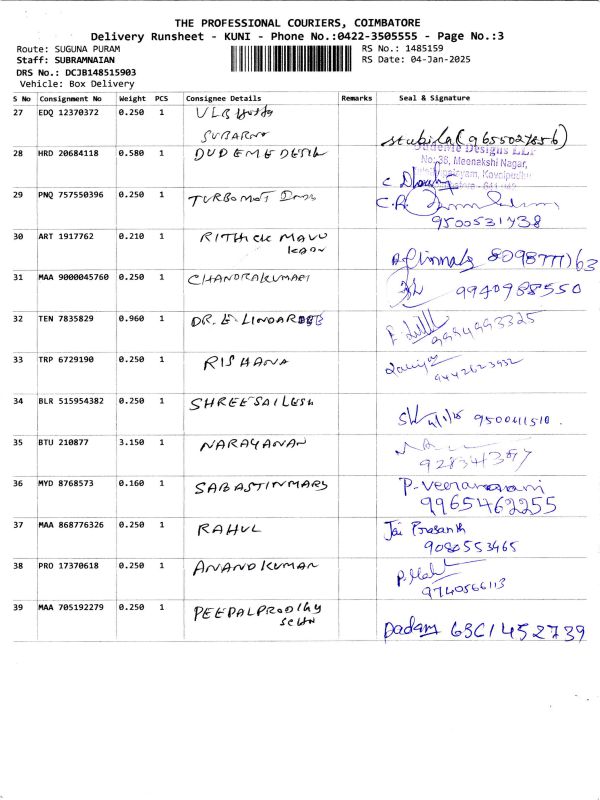 THE PROFESSIONAL COURIERS, COIMBATORE
Delivery Runsheet - KUNI - Phone No.:0422-3505555 - Page No.:3
Route: SUGUNA PURAM
RS No.: 1485159
Staff: SUBRAMNAIAN
RS Date: 04-Jan-2025
DRS No.: DCJB148515903
Vehicle: Box Delivery
S No Consignment No Weight PCS Consignee Details Remarks Seal & Signature
27 EDQ 12370372 0.250 1 VLB
SUBARNO
28 HRD 20684118 0.580 1 DUDEME DESIG
No: 36, Meenakshi Nagar,
29 PNQ 757550396 0.250 1 TURBOMOT
9500531738
30 ART 1917762 0.210 1 RITHICK MAVU
31 MAA 9000045760 0.250 1 CHANDRAKUMARI 9940988550
32 TEN 7835829 0.960 1 DR. E LINDA 9994993325
33 TRP 6729190 0.250 1 RISHANA
9442623932
34 BLR 515954382 0.250 1 SHREESAILESH
35 BTU 210877 3.150 1 NARAYANAN
36 MYD 8768573 0.160 1 SABASTINMARY P. Veeramani
9965462255
37 MAA 868776326 0.250 1 RAHUL Jai Prasanth
9080553465
38 PRO 17370618 0.250 1 ANANDKUMAR
9740566113
39 MAA 705192279 0.250 1 PEEPALPRODIGY
SCHN
Padam